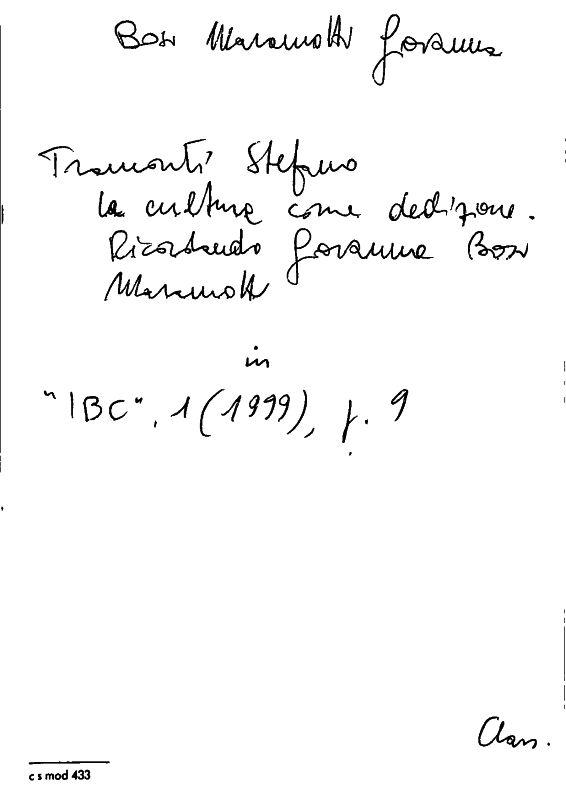 Bosi Maramotti Giovanna
Tramonti Stefano
La cultura come dedizione.
Ricordando Giovanna Bosi
Maramotti
in
"IBC", 1 (1999), p. 9
Class.
c s mod 433